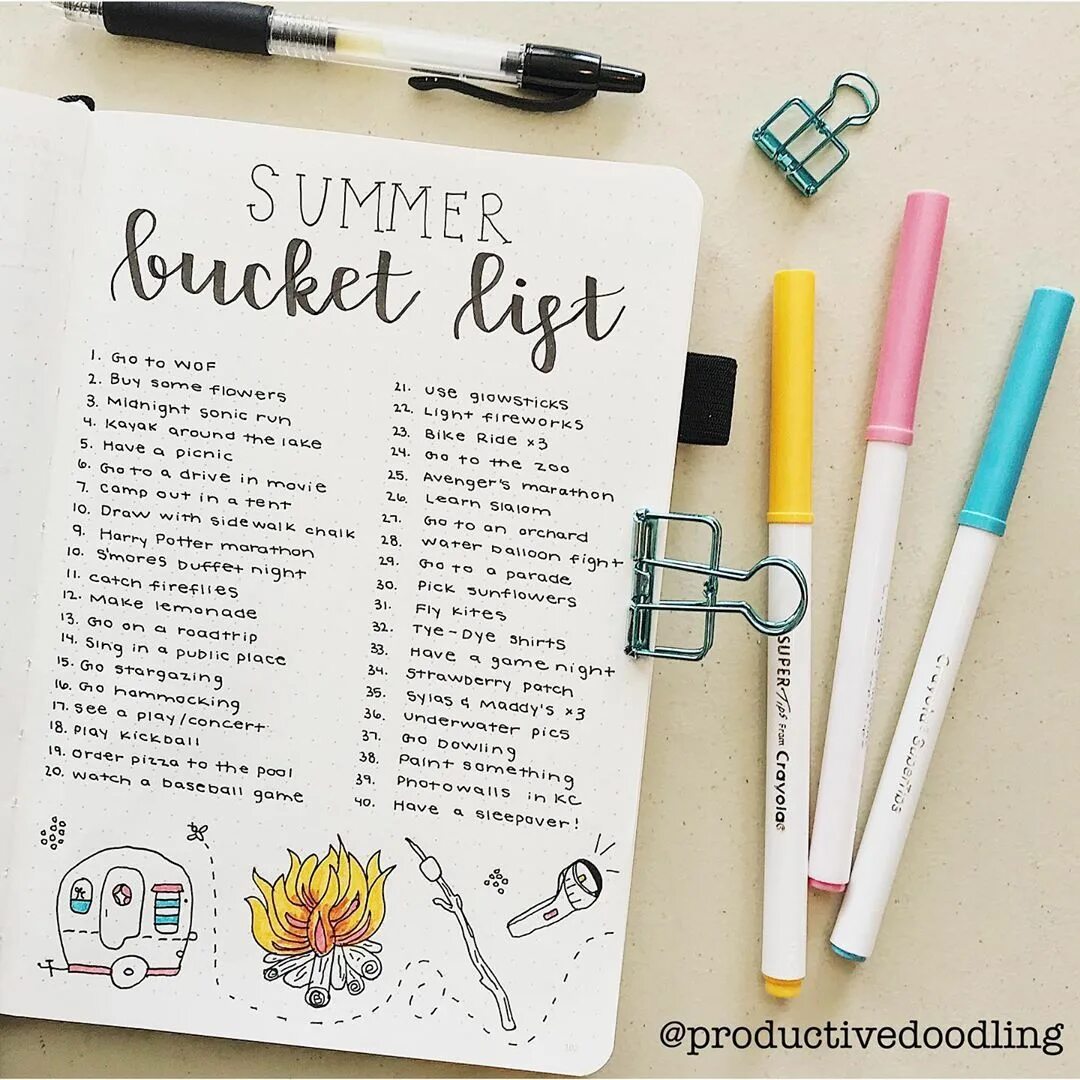 SUMMER
bucket list
1. Go to WOF
2. Buy some flowers
3. Midnight sonic run
4. Kayak around the lake
5. Have a picnic
6. Go to a drive in movie
7. Camp out in a tent
10. Draw with sidewalk chalk
9. Harry Potter marathon
10. S'mores buffet night
11. Catch fireflies
12. Make lemonade
13. Go on a roadtrip
14. Sing in a public place
15. Go stargazing
16. Go hammocking
17. See a play/concert
18. Play kickball
19. Order pizza to the pool
20. Watch a baseball game
21. Use glowsticks
22. Light fireworks
23. Bike Ride x3
24. Go to the zoo
25. Avenger's marathon
26. Learn slalom
27. Go to an orchard
28. Water balloon fight
29. Go to a parade
30. Pick sunflowers
31. Fly kites
32. Tye-Dye shirts
33. Have a game night
34. Strawberry patch
35. Sylas & Maddy's x3
36. Underwater pics
37. Go bowling
38. Paint something
39. Photowalls in KC
40. Have a sleepover!
SUPER Tips From Crayola
Crayola SuperTips
@productivedoodling